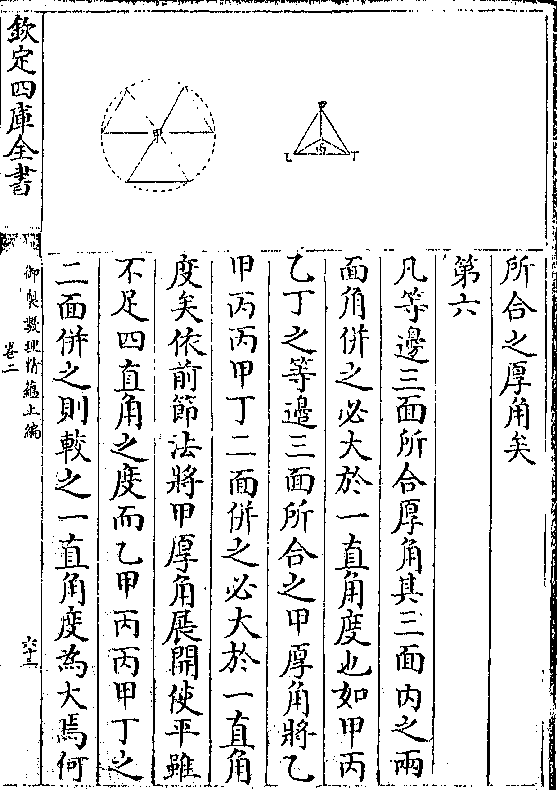 所合之厚角矣
第六
凡等邊三面所合厚角其三面内之兩
面角併之必大於一直角度也如甲丙
乙丁之等邊三面所合之甲厚角將乙
甲丙丙甲丁二面併之必大於一直角
度矣依前節法將甲厚角展開使平雖
不足四直角之度而乙甲丙丙甲丁之
二面併之則較之一直角度為大焉何
甲
丙
乙
丁
甲
欽定四庫全書
御製數理精蘊上編
卷二
六十三